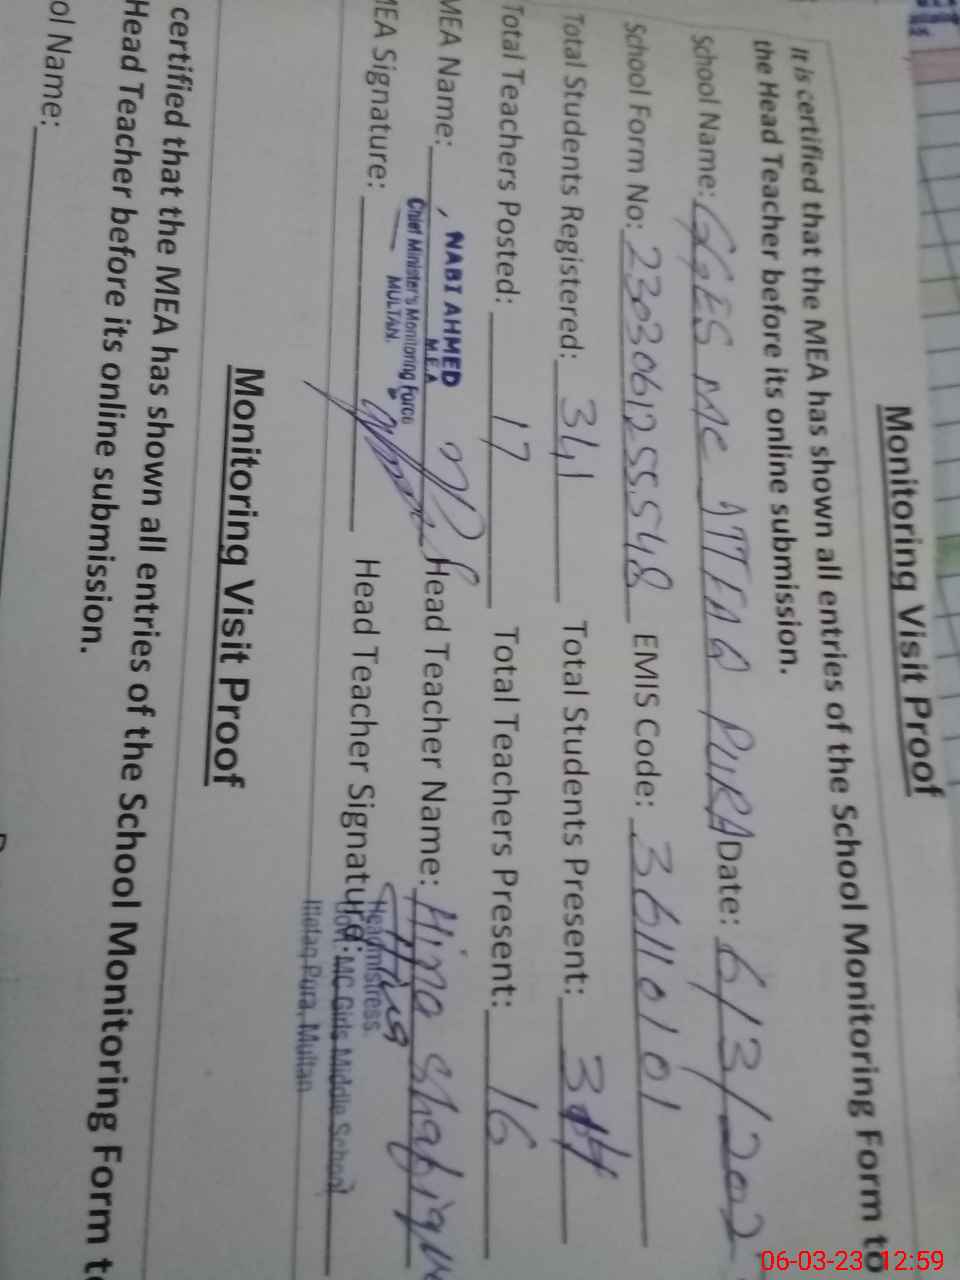 Monitoring Visit Proof
It is certified that the MEA has shown all entries of the School Monitoring Form to
the Head Teacher before its online submission.
School Name: GGES MC ITTFAQ PURA Date: 6/3/202
School Form No: 23030612555548 EMIS Code: 36110101
Total Students Registered: 341 Total Students Present: 314
Total Teachers Posted: 17 Total Teachers Present: 16
MEA Name: NABI AHMED Head Teacher Name: Hina Shafique
M.E.A
Chief Minister's Monitoring Force
MULTAN.
MEA Signature: Head Teacher Signature:
Headmistress
Govt. MC Girls Middle School
Ittefaq Pura, Multan
Monitoring Visit Proof
certified that the MEA has shown all entries of the School Monitoring Form to
Head Teacher before its online submission.
ol Name:
06-03-23 12:59